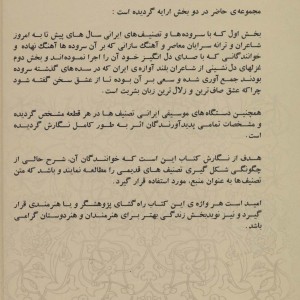 مجموعه‌ی حاضر در دو بخش ارایه گردیده است :
بخش اول که با سروده‌ها و تصنیف‌های ایرانی سال های پیش تا به امروز
شاعران و ترانه سرایان معاصر و آهنگ سازانی که بر آن سروده ها آهنگ نهاده و
خوانندگانی که با صدای دل انگیز خود آن را اجرا کرده‌اند می‌باشد و بخش دوم
غزلهای دل نشینی از شاعران بلند آوازه‌ی ایران که در سده‌های گذشته سروده
بودند جمع آوری شده و سعی بر آن بوده تا از عشق سخن گفته شود
چراکه عشق صاف ترین و زلال ترین زبان بشریت است .
همچنین دستگاه‌های موسیقی ایرانی تصنیف ها در هر قطعه مشخص گردیده
و مشخصات تمامی پدیدآورندگان اثر به طور کامل نگارش گردیده
است .
هدف از نگارش کتاب این است که خوانندگان آن، شرح حالی از
چگونگی شکل گیری تصنیف های قدیمی را مطالعه نمایند و باشد که متن
تصنیف‌ها به عنوان منبع، مورد استفاده قرار گیرد .
امید است هر واژه ی این کتاب راه گشای پژوهشگر و یا هنرمندی قرار
گیرد و نیز نویدبخش زندگی بهتر برای هنرمندان و هنردوستان گرامی
باشد .